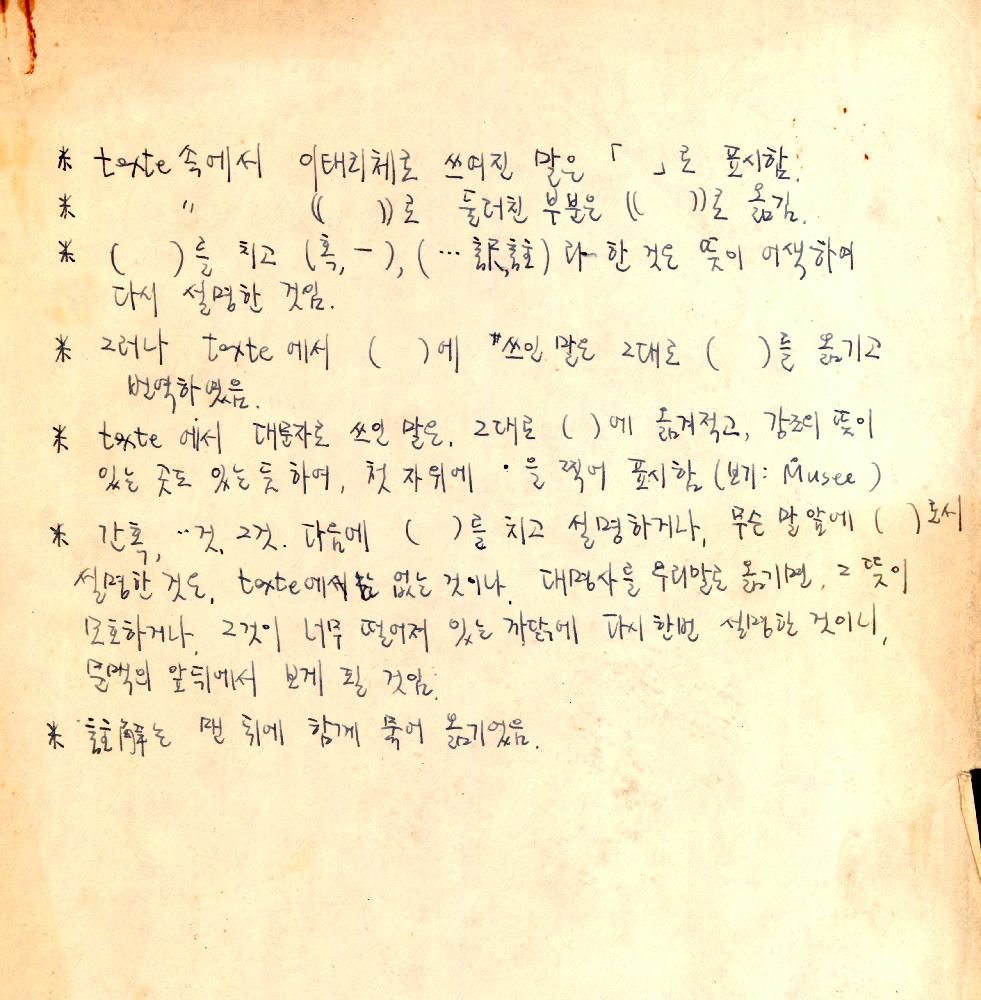 ※ texte 속에서 이태리체로 쓰여진 말은 「 」로 표시함.
※ 〃 (( ))로 둘러친 부분은 (( ))로 옮김.
※ ( )를 치고 (혹, ―), (… 訳註) 라 한 것은 뜻이 어색하여
다시 설명한 것임.
※ 그러나 texte 에서 ( )에 쓰인 말은 그대로 ( )를 옮기고
번역하였음.
※ texte 에서 대문자로 쓰인 말은, 그대로 ( )에 옮겨적고, 강조의 뜻이
있는 곳도 있는 듯 하여, 첫 자위에 · 을 찍어 표시함 (보기: Musee )
※ 간혹, ··것, 그것. 다음에 ( )를 치고 설명하거나, 무슨 말 앞에 ( )로서
설명한 것은, texte에서는 없는 것이나, 대명사를 우리말로 옮기면, 그 뜻이
모호하거나, 그것이 너무 떨어져 있는 까닭에 다시 한번 설명한 것이니,
문맥의 앞뒤에서 보게 될 것임.
※ 註解는 맨 뒤에 함께 묶어 옮기었음.